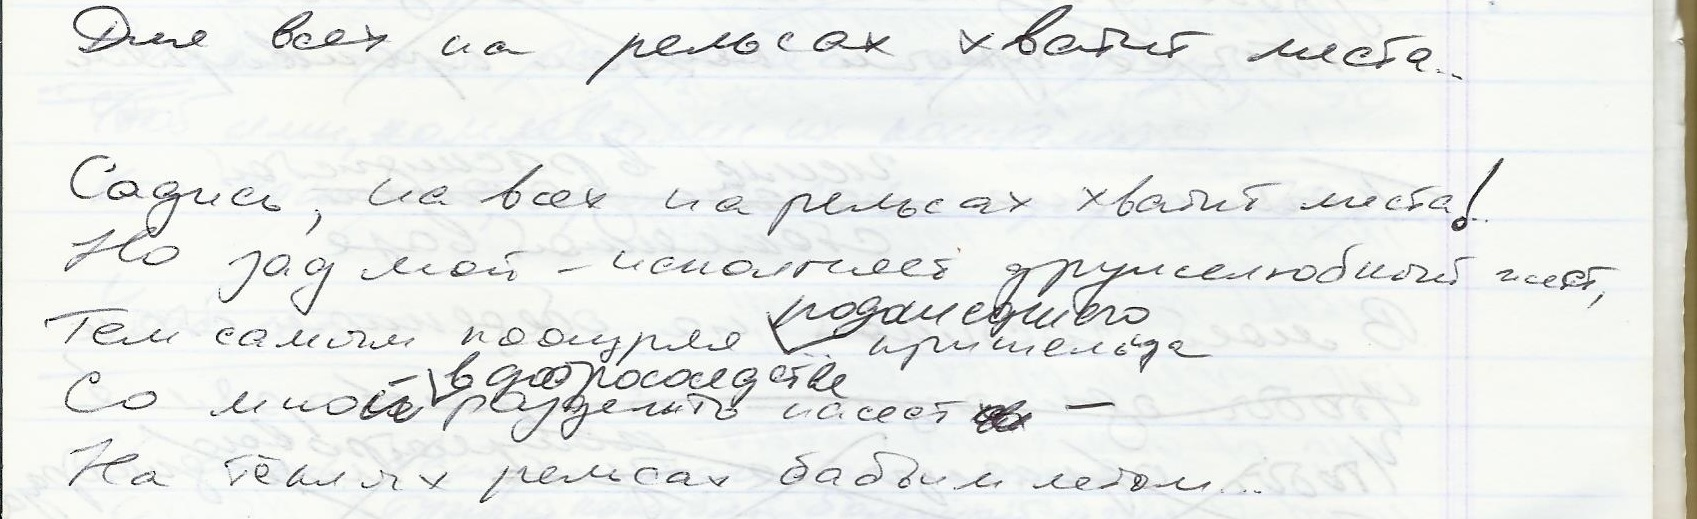 Для всех на рельсах хватит места...
Садись, на всех на рельсах хватит места!..
Но зад мой – исполняет дружелюбный жест,
Тем самым поощряя подошедшего пришельца
Со мной в добрососедстве разделить насест –
На тёплых рельсах бабьим летом...